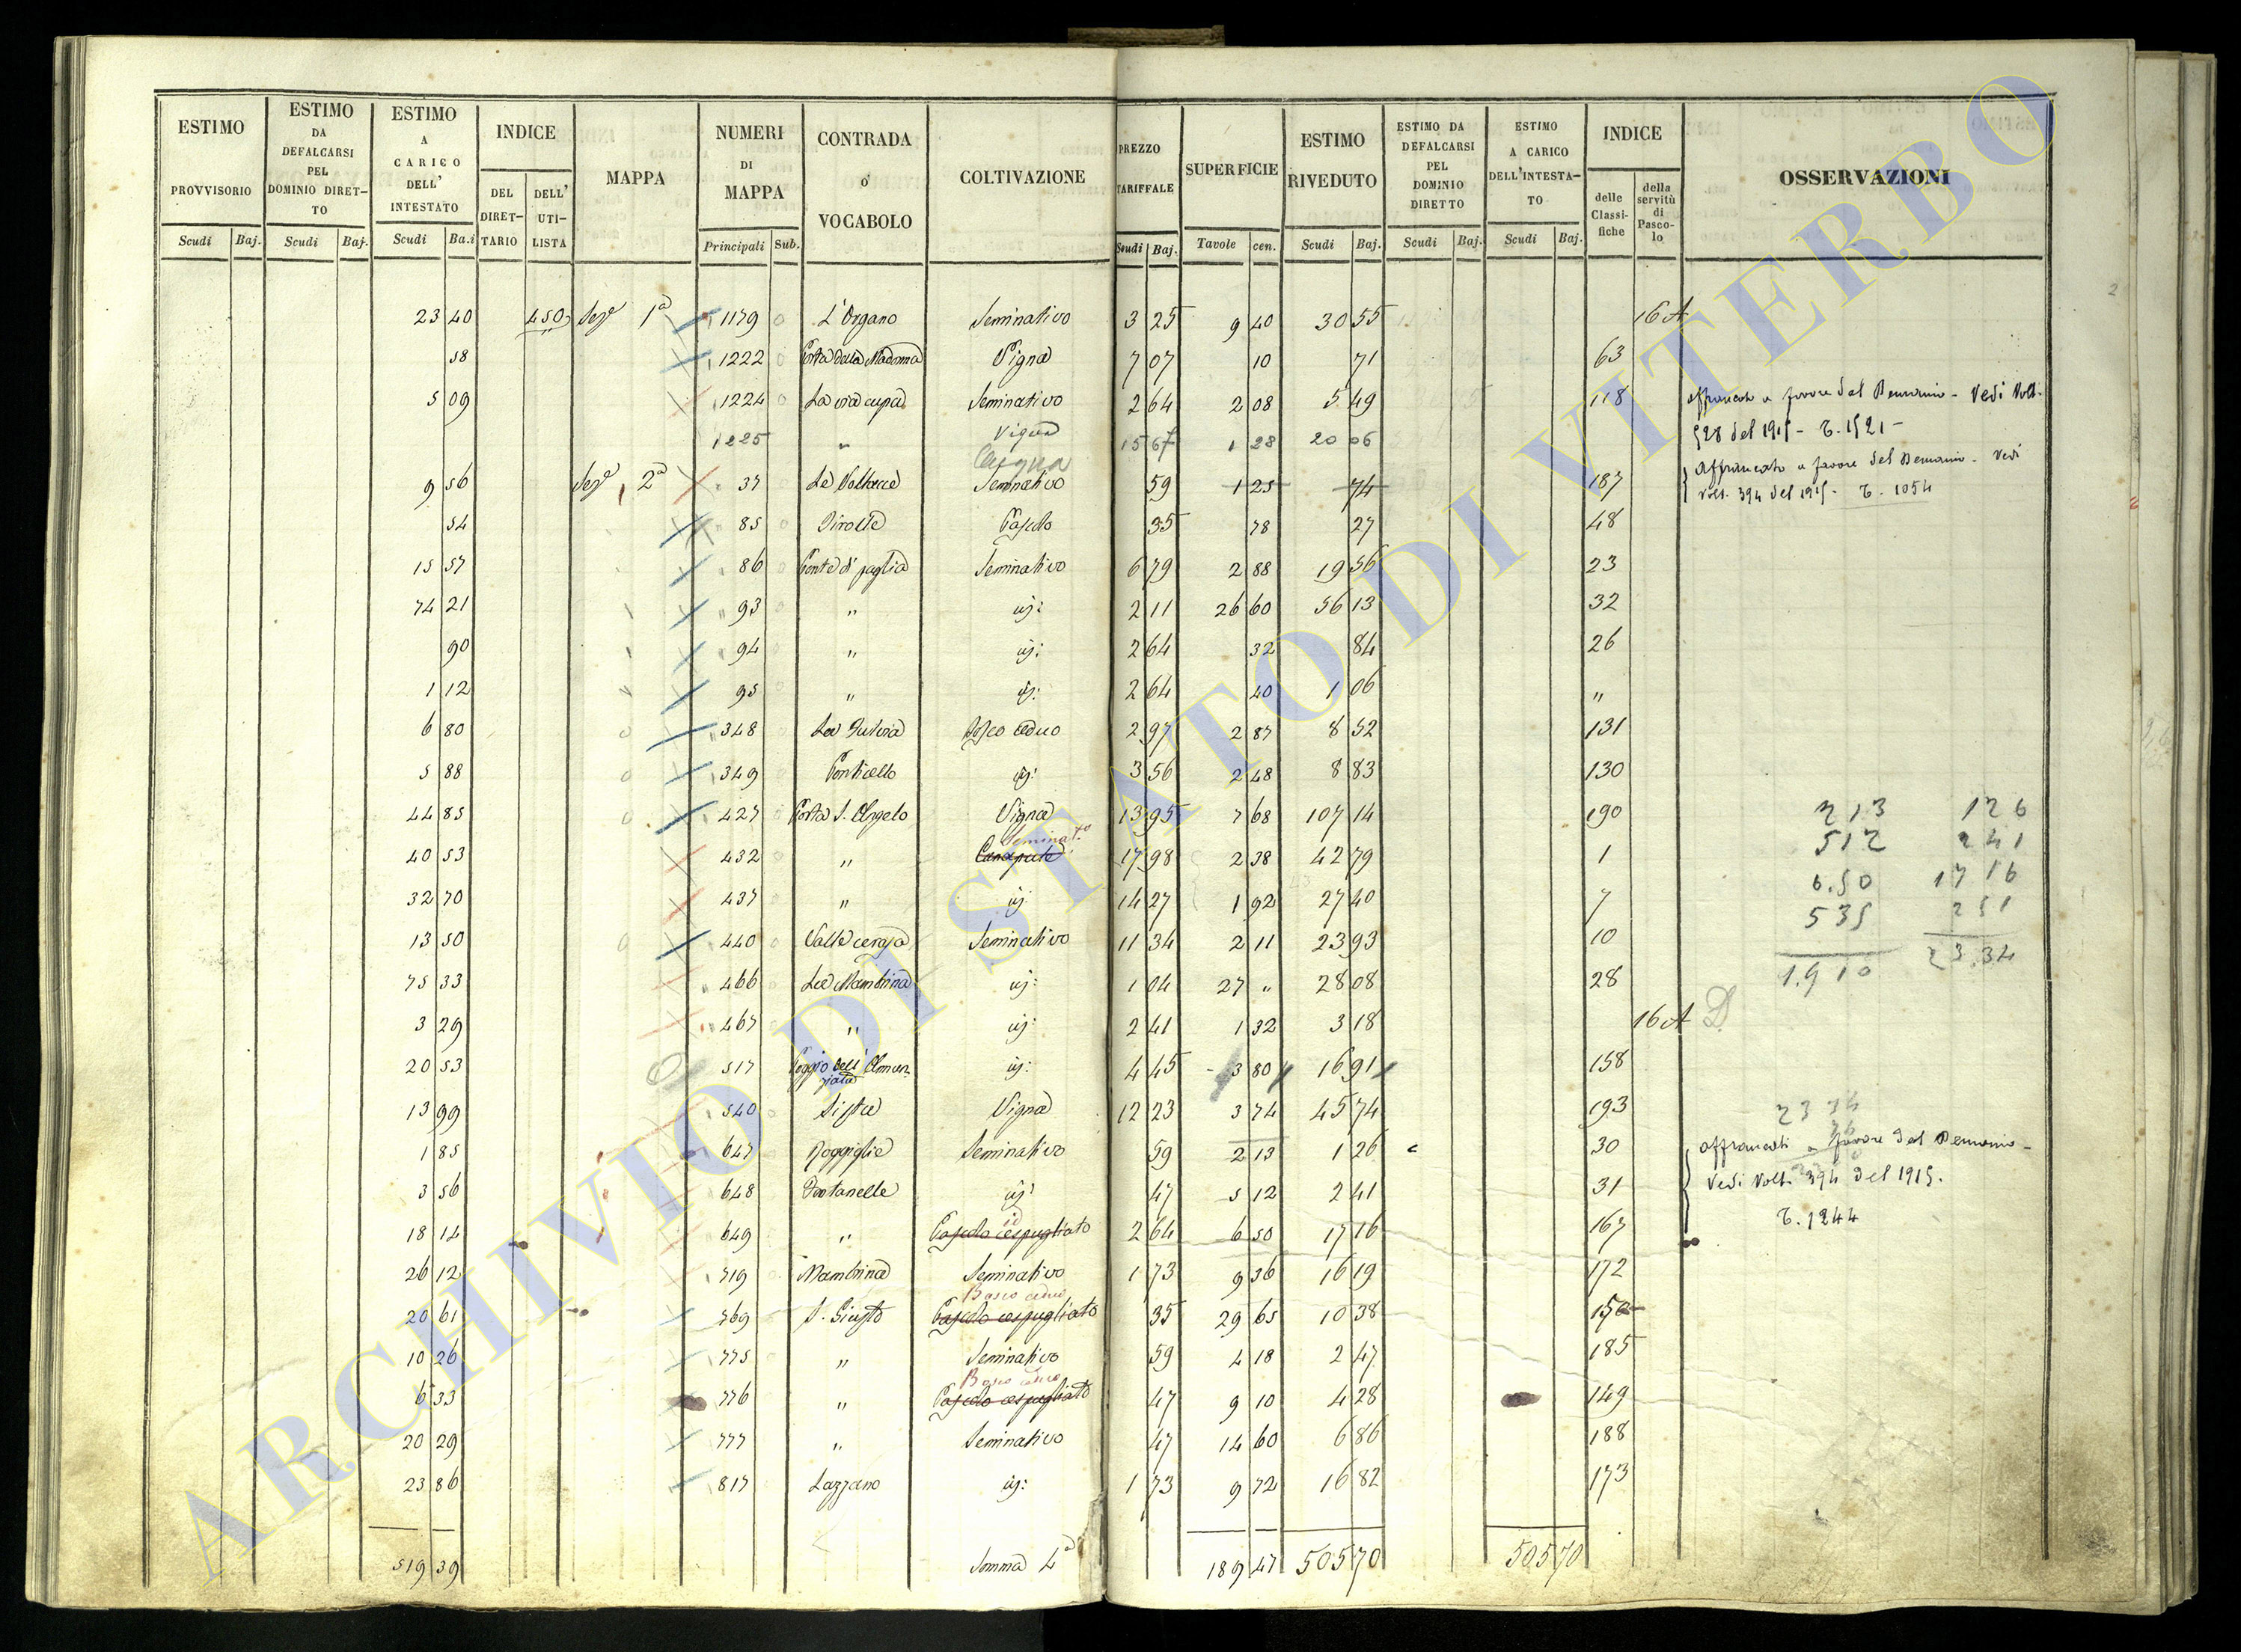 ESTIMO PROVVISORIO Scudi Baj. | ESTIMO DA DEFALCARSI PEL DOMINIO DIRET-TO Scudi Baj. | ESTIMO A CARICO DELL' INTESTATO Scudi Ba.i | INDICE DEL DIRET-TARIO DELL' UTI-LISTA | MAPPA | NUMERI DI MAPPA Principali Sub. | CONTRADA O VOCABOLO | COLTIVAZIONE | PREZZO TARIFFALE Scudi Baj. | SUPERFICIE Tavole cen. | ESTIMO RIVEDUTO Scudi Baj. | ESTIMO DA DEFALCARSI PEL DOMINIO DIRETTO Scudi Baj. | ESTIMO A CARICO DELL'INTESTA-TO Scudi Baj. | INDICE delle Classi-fiche della servitù di Pasco-lo | OSSERVAZIONI
23 40 450 Sez.e 1a 1179 0 L'Organo Seminativo 3 25 9 40 30 55 16 A
58 1222 Porta della Madonna Vigna 7 07 10 71 63
5 09 1224 0 La via cupa Seminativo 2 64 2 08 5 49 118 affrancato a favore del Demanio - Vedi Volt.
1225 " Vigna 15 67 1 28 20 06 528 del 1915 - T. 1521 -
9 56 Sez.e 2a 37 Le Vallacce Seminativo 59 1 25 74 187 Affrancato a favore del Demanio. Vedi
Volt. 394 del 1915 - T. 1054
54 85 0 Pascolo 35 78 27 48
15 57 86 Fonte di paglia Seminativo 6 79 2 88 19 56 23
74 21 93 " id: 2 11 26 60 56 13 32
90 94 " id: 2 64 32 84 26
1 12 95 " id: 2 64 40 1 06 "
6 80 348 Bosco ceduo 2 97 2 87 8 52 131
5 88 349 Ponticello id: 3 56 2 48 8 83 130
44 85 427 Porta S. Angelo Vigna 13 95 7 68 107 14 190 213 126
Seminat.o
40 53 432 " Canapule 17 98 2 38 42 79 1 512 241
32 70 437 " id 14 27 1 92 27 40 7 6.50 17 16
13 50 440 Valle ceraja Seminativo 11 34 2 11 23 93 10 535 251
75 33 466 La Mambrina id: 1 04 27 " 28 08 28 1.910 23.34
3 29 467 " id: 2 41 1 32 3 18 16 A
20 53 517 Poggio dell'Annun-ziata id: 4 45 3 80 16 91 158
13 99 540 Sista Vigna 12 23 3 74 45 74 193
1 85 647 Roggiglie Seminativo 59 2 13 1 26 30 Affrancati a favore del Demanio -
3 56 648 Fontanelle id: 47 5 12 2 41 31 Vedi Volt. 394 del 1915.
18 14 649 " Pascolo cespugliato id 2 64 6 50 17 16 167 T. 1244
26 12 719 Mambrina Seminativo 1 73 9 36 16 19 172
Bosco ceduo
20 61 769 S. Giusto Pascolo cespugliato 35 29 65 10 38 150
10 26 775 " Seminativo 59 4 18 2 47 185
Bosco ceduo
6 33 776 " Pascolo cespugliato 47 9 10 4 28 149
20 29 777 " Seminativo 47 14 60 6 86 188
23 86 817 Lazzano id: 1 73 9 72 16 82 173
519 39 Somma La 189 47 505 70 505 70
ARCHIVIO DI STATO DI VITERBO